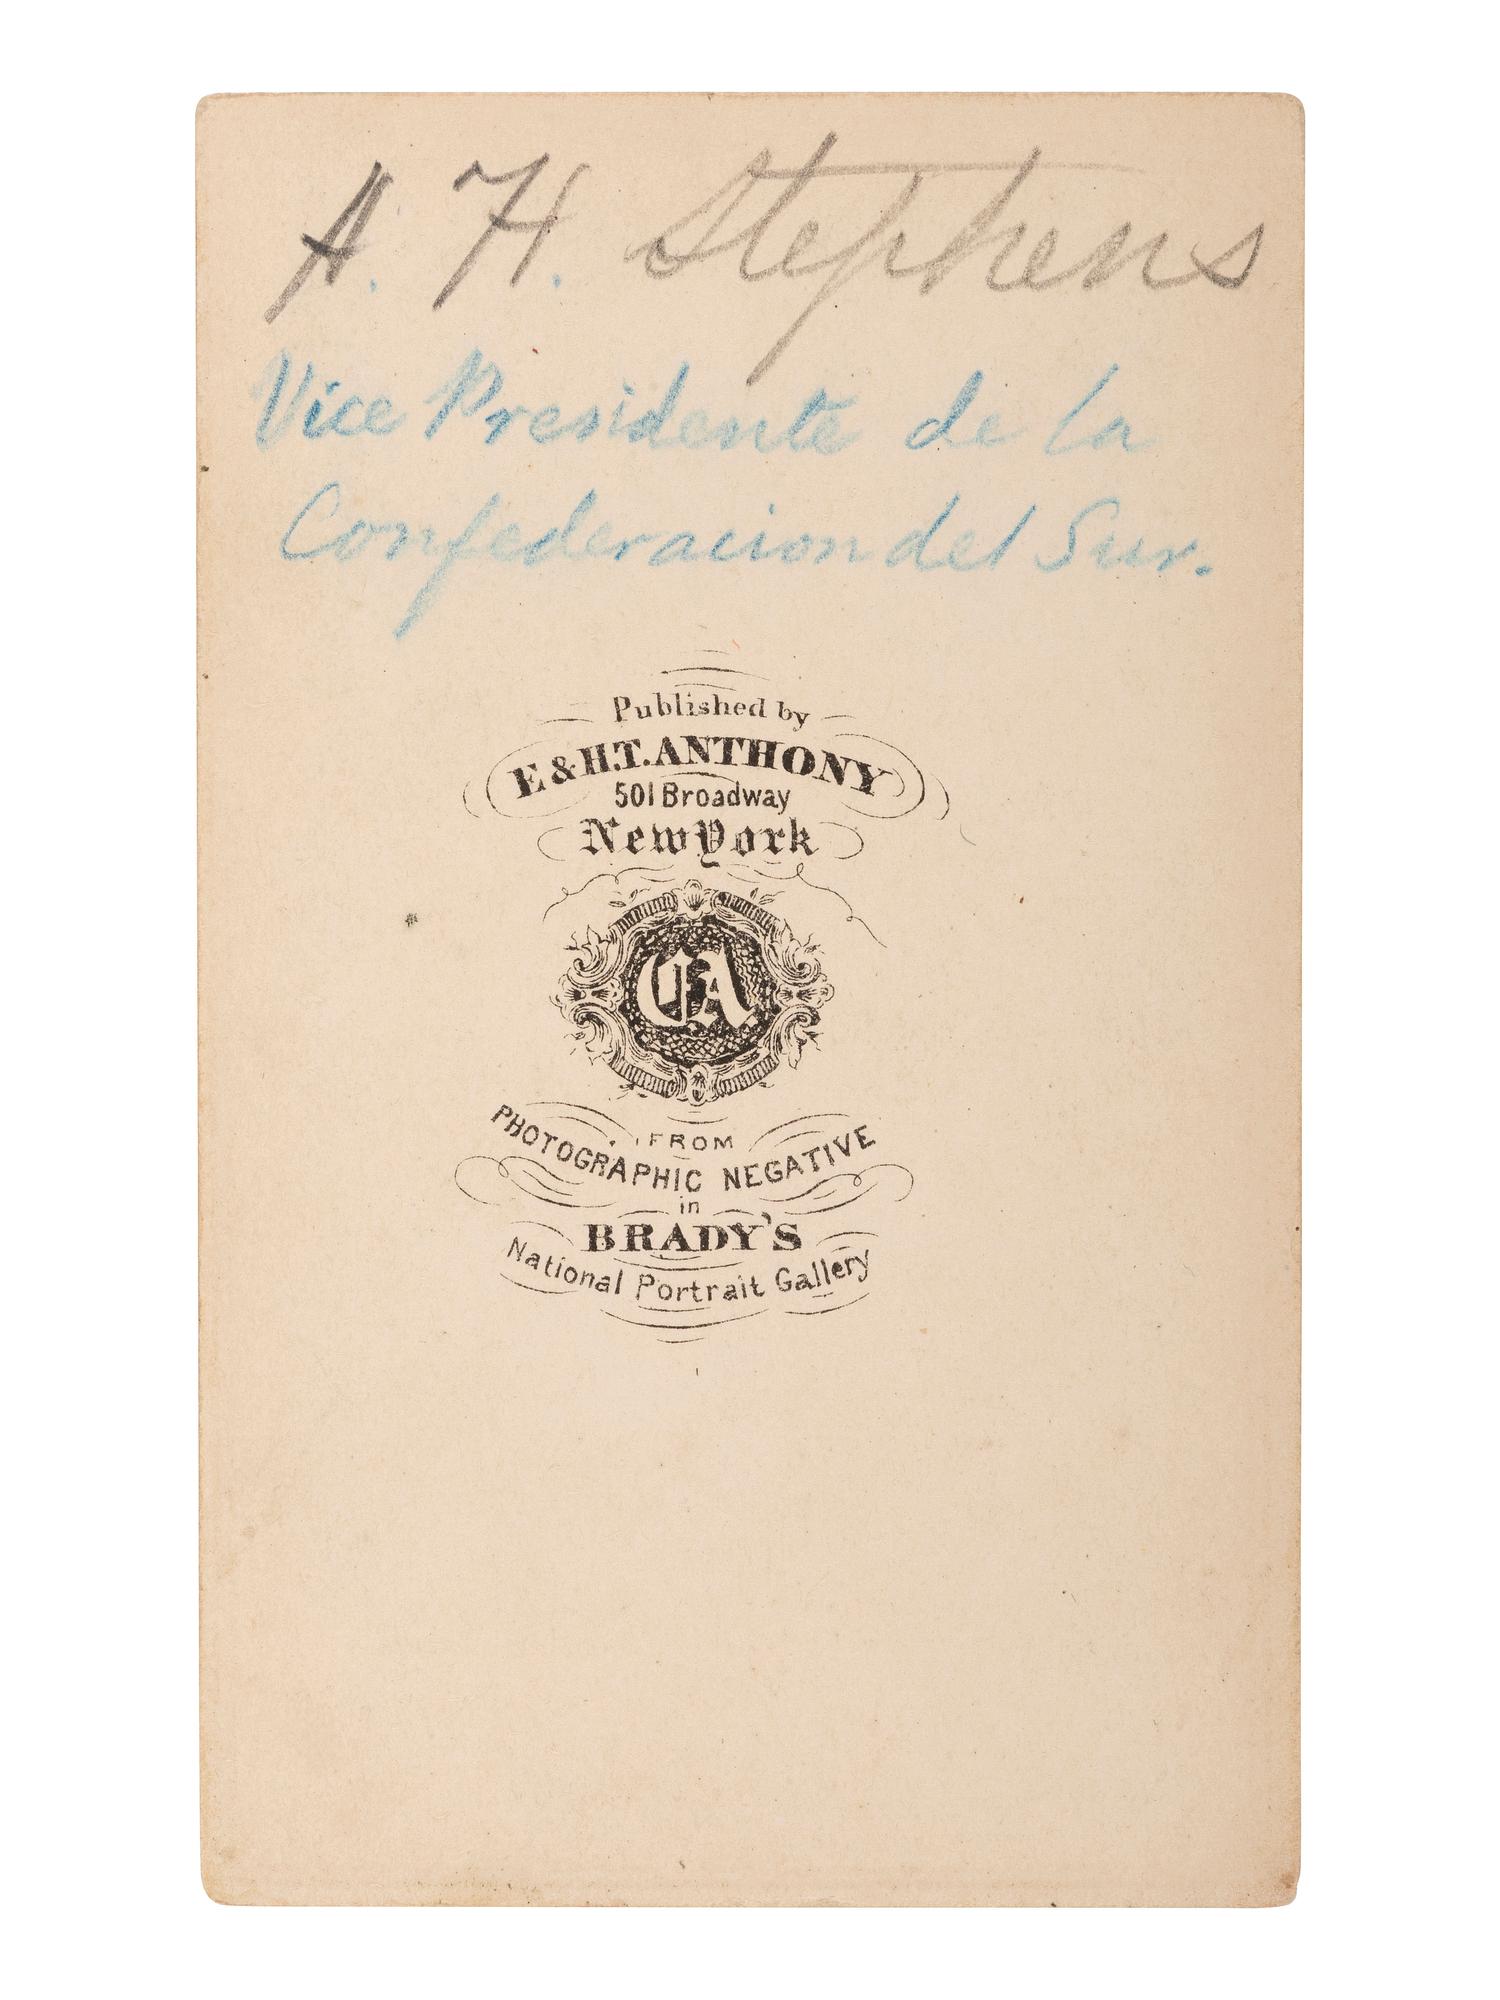 A. H. Stephens
Vice Presidente de la
Confederacion del Sur.
Published by
E & H.T. ANTHONY
501 Broadway
New York
CA
FROM
PHOTOGRAPHIC NEGATIVE
in
BRADY'S
National Portrait Gallery